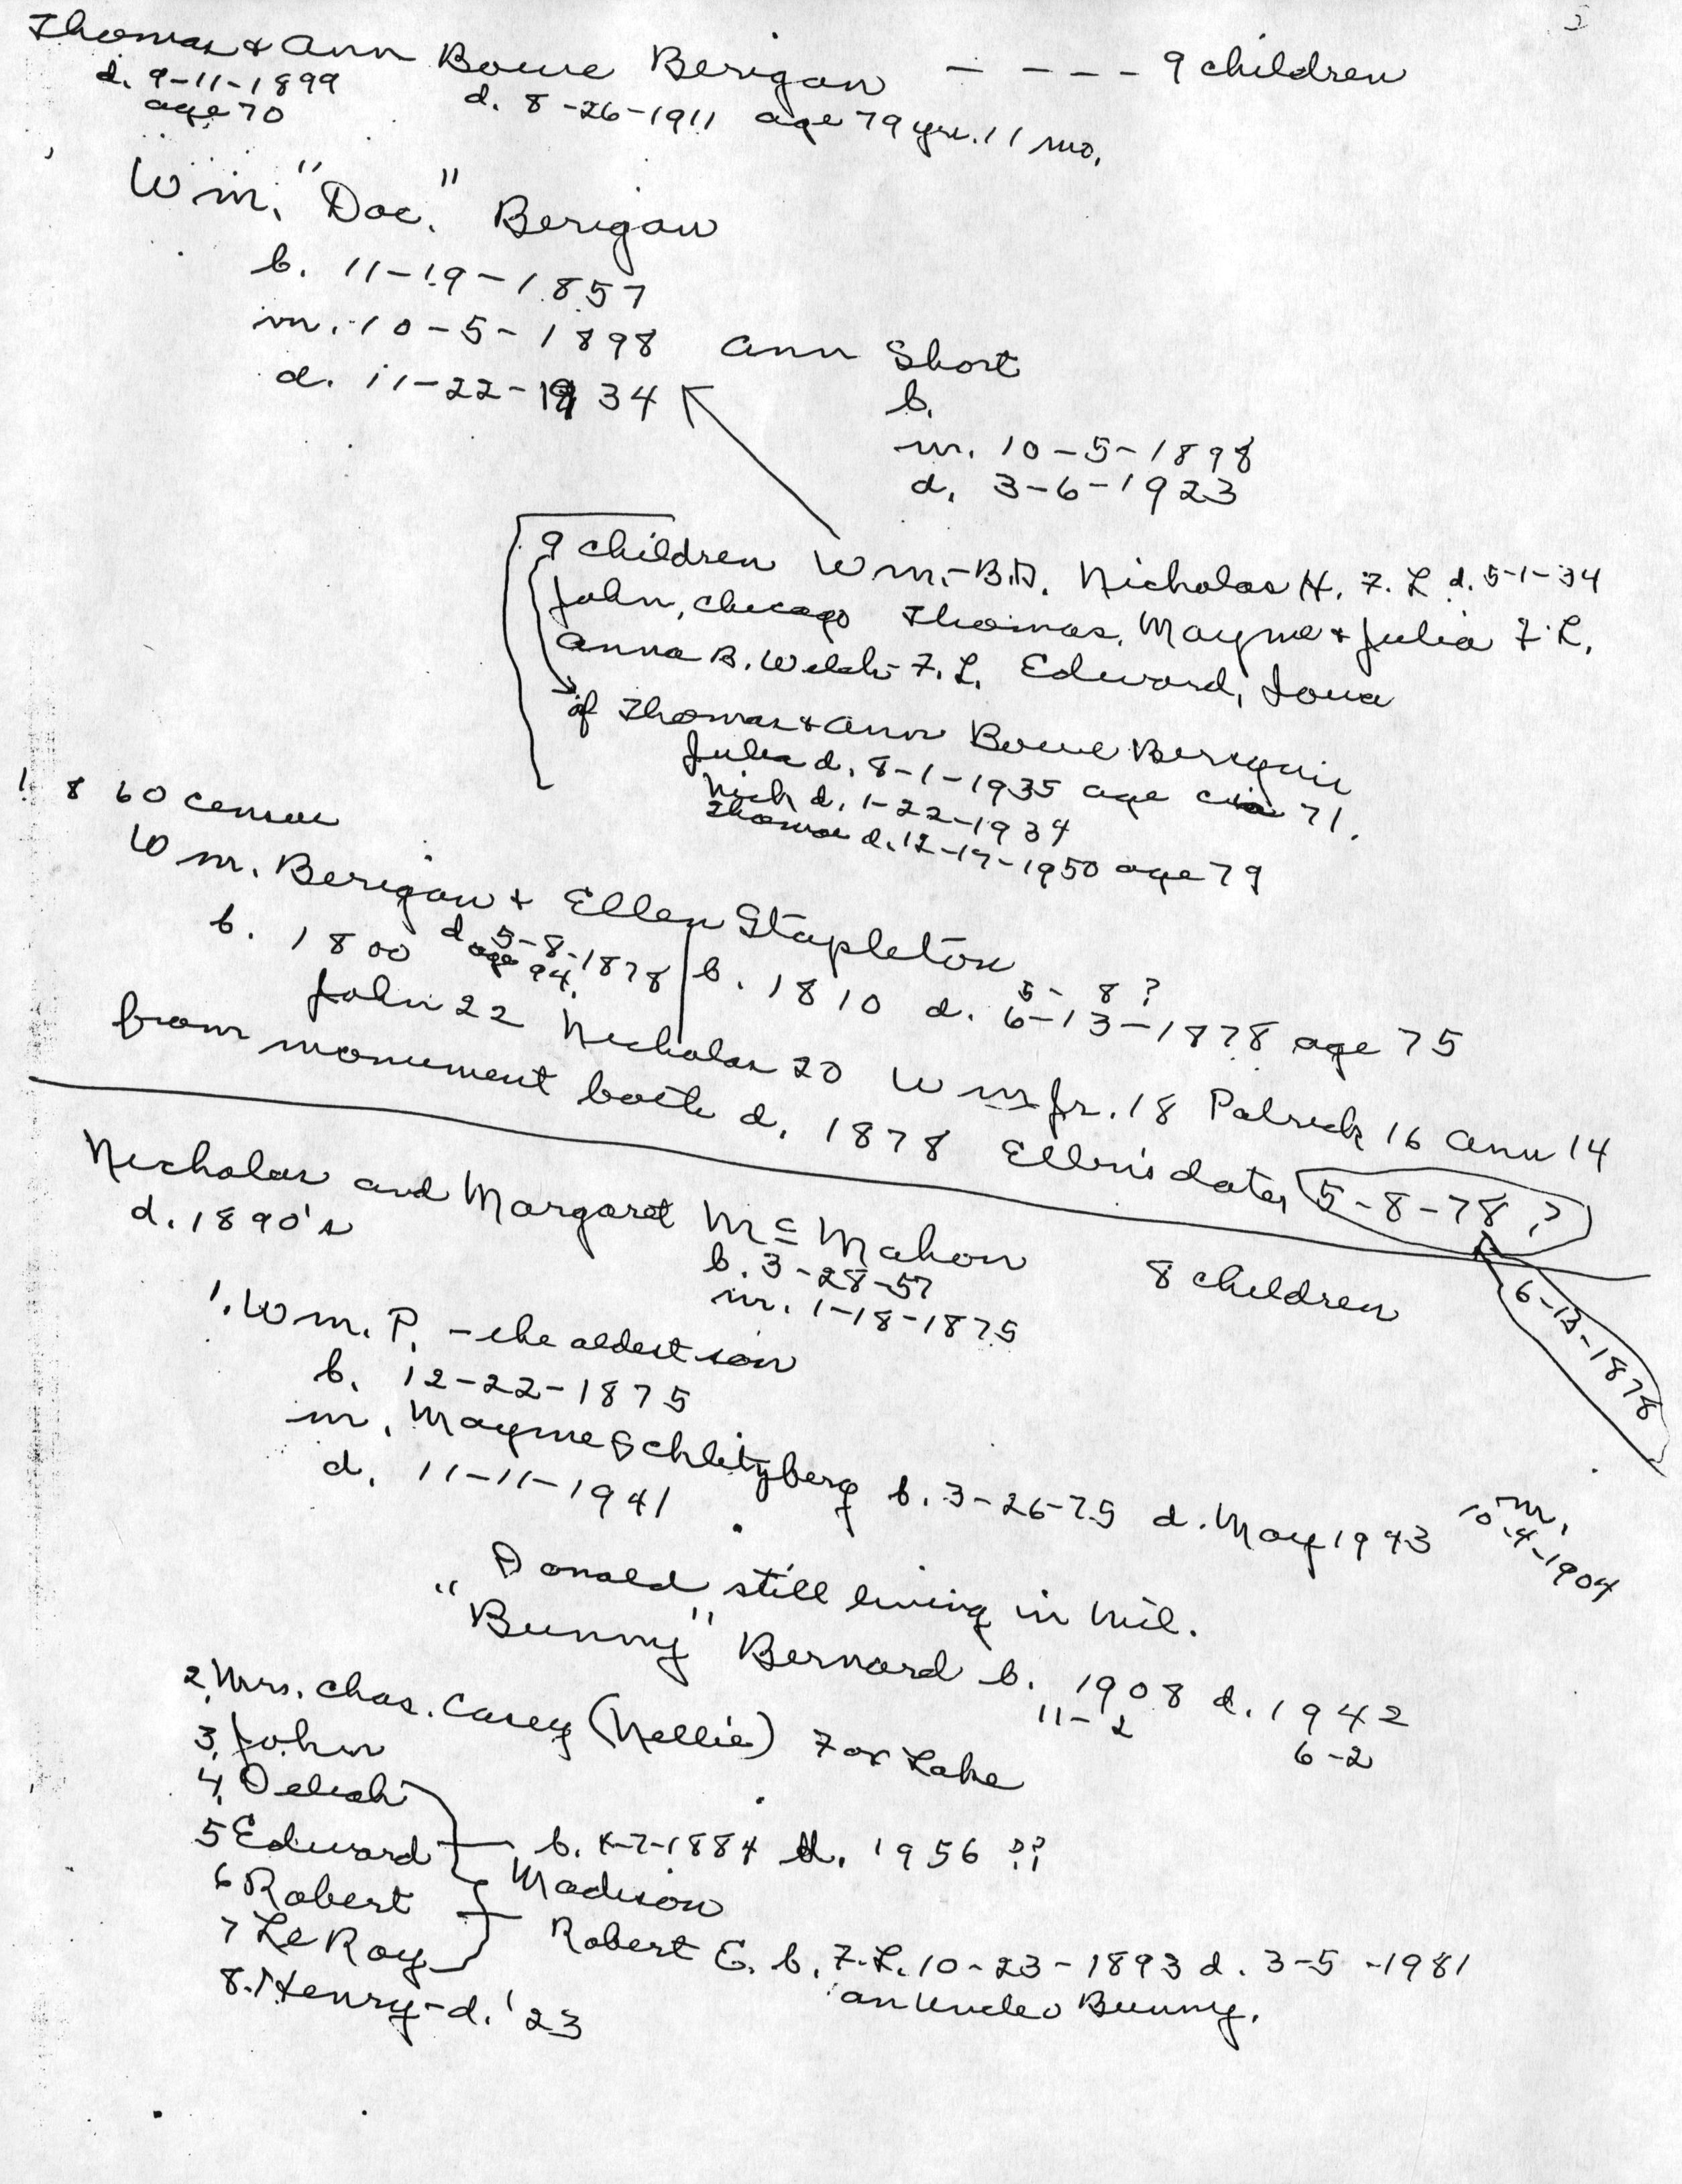 Thomas & Ann Bowe Berigan - - - - 9 children
d. 9-11-1899
age 70
d. 8-26-1911 age 79 yrs. 11 mo.
Wm. "Doc." Berigan
b. 11-19-1857
m. 10-5-1898 Ann Short
d. 11-22-1934
b.
m. 10-5-1898
d. 3-6-1923
9 children Wm.-B.D. Nicholas H. F.L. d. 5-1-34
John, Chicago Thomas, Mayme & Julia F.L.
Anna B. Welch-F.L. Edward, Iowa
of Thomas & Ann Bowe Berigan
Julia d. 8-1-1935 age 71.
Nich d. 1-22-1934
Thomas d. 12-17-1950 age 79
1860 census
Wm. Berigan & Ellen Stapleton
b. 1800 d. 5-8-1878 age 94.
b. 1810 d. 6-13-1878 age 75
5- 8 ?
John 22 Nicholas 20 Wm Jr. 18 Patrick 16 Ann 14
from monument both d. 1878 Ellen's date, 5-8-78?
6-13-1878
Nicholas and Margaret McMahon 8 children
d. 1890's
b. 3-28-57
m. 1-18-1875
1. Wm. P. - the oldest son
b. 12-22-1875
m. Mayme Schlitzberg b. 3-26-75 d. May 1943 m. 10-4-1904
d. 11-11-1941
Donald still living in Mil.
"Bunny" Bernard b. 1908 d. 1942
11-2 6-2
2. Mrs. Chas. Casey (Nellie) Fox Lake
3. John
4. Deliah
5 Edward b. 4-7-1884 d. 1956 ??
Madison
6 Robert
7 LeRoy
Robert E. b. F.L. 10-23-1893 d. 3-5-1981
an uncle o Bunny.
8. Henry-d. '23